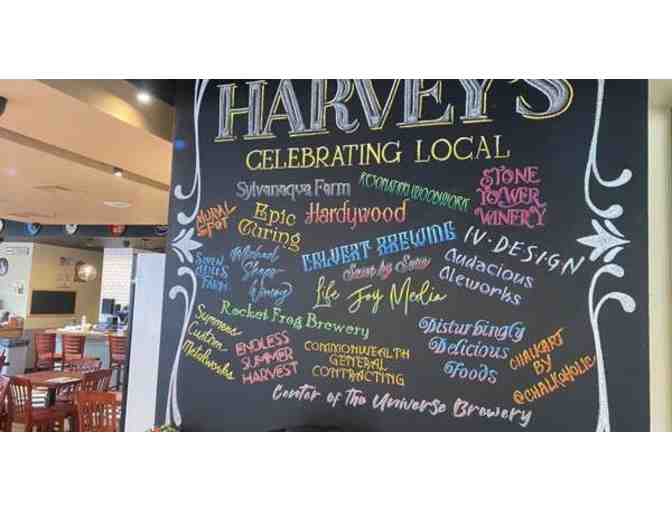 HARVEY'S
CELEBRATING LOCAL
Sylvanaqua Farm
STONE
TOWER
WINERY
RURAL
SPOT
Epic
Curing
Hardywood
CALVERT BREWING
IV·DESIGN
SEVEN
HILLS
FARM
Michael
Shaps
Winery
Sewn by
Audacious
Aleworks
Life Joy Media
Rocket Frog Brewery
Summers
Custom
Metalworks
ENDLESS
SUMMER
HARVEST
COMMONWEALTH
GENERAL
CONTRACTING
Disturbingly
Delicious
Foods
CHALKART
BY
@CHALKOHOLIC
Center of the Universe Brewery